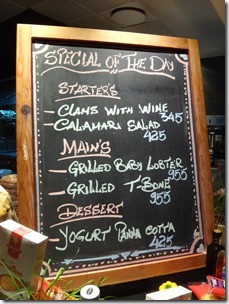 SPECIAL OF THE DAY
STARTER'S
- CLAMS WITH WINE 345
- CALAMARI SALAD 425
MAIN'S
- GRILLED BABY LOBTER 955
- GRILLED T-BONE 955
DESSERT
- YOGURT PANNA COTTA 425